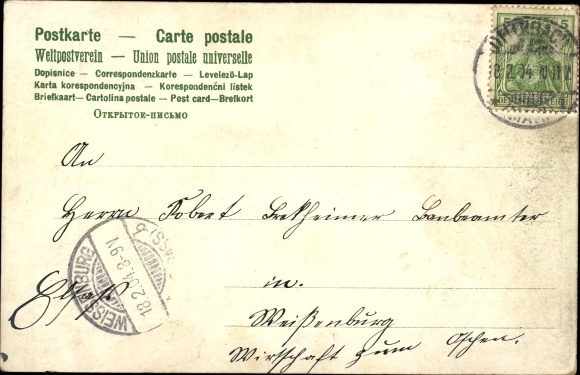 Postkarte — Carte postale
Weltpostverein — Union postale universelle
Dopisnice — Correspondenzkarte — Levelező-Lap
Karta korespondencyjna — Korespondenční lístek
Briefkaart — Cartolina postale — Post card — Brefkort
Открытое-письмо
5 5
DEUTSCHES REICH
MAIN
An
Herrn Robert Beckheimer Baubeamter
Elsass in.
Weißenburg
Wirtschaft zum Ochsen.
WEISSENBURG
18.2.04. 8-9V